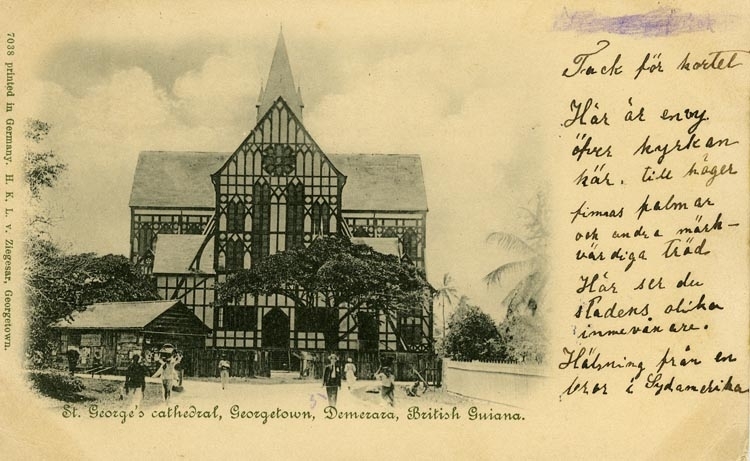 7038 printed in Germany. H. K. L. v. Ziegesar, Georgetown.
St. George's cathedral, Georgetown, Demerara, British Guiana.
Tack för kortet
Här är en vy
öfver kyrkan
här. till höger
finnas palmar
och andra märk-
värdiga träd
Här ser du
stadens olika
innevånare.
Hälsning från en
bror i Sydamerika